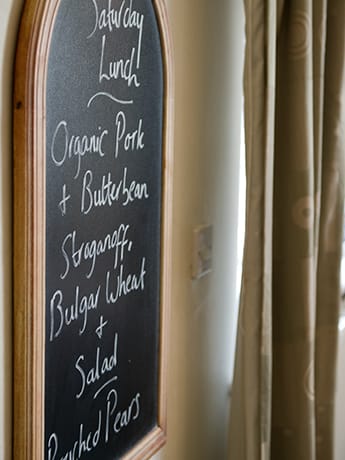 Saturday
Lunch
Organic Pork
+ Butterbean
Stroganoff,
Bulgar Wheat
+
Salad
Poached Pears